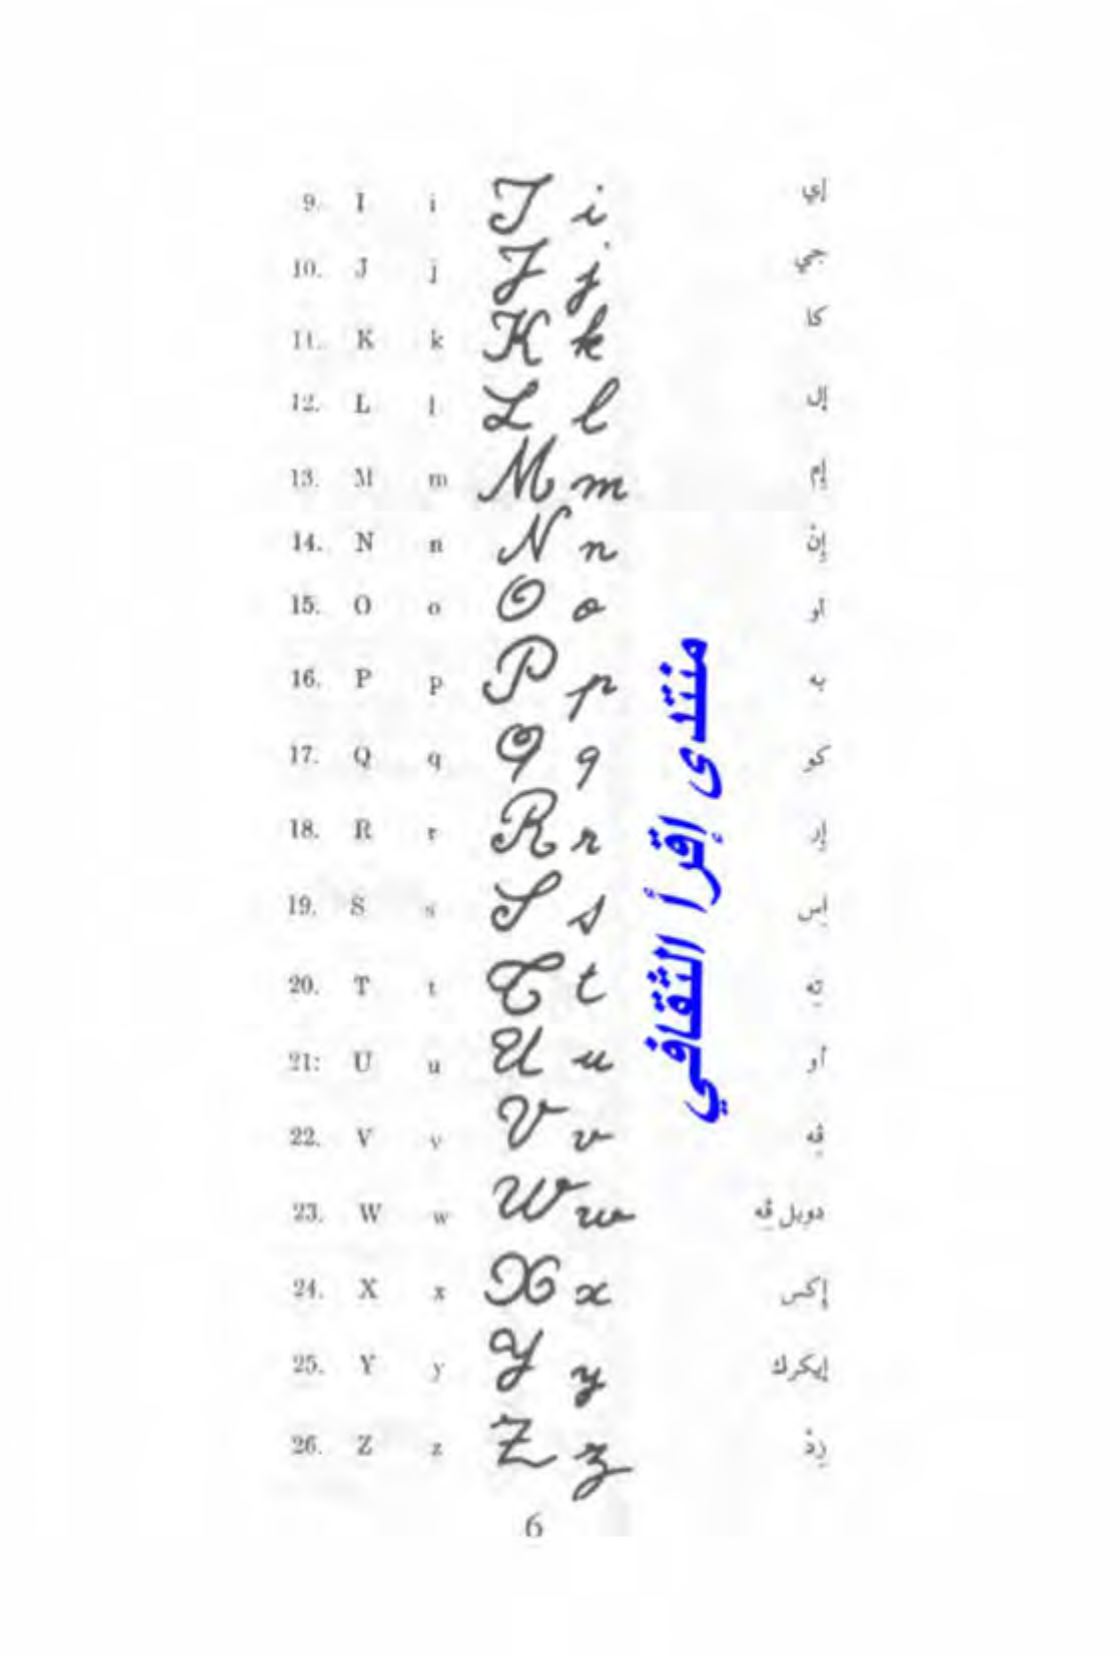 9. I i I i إي
10. J j J j جي
11. K k K k كا
12. L l L l إل
13. M m M m إم
14. N n N n إنْ
15. O o O o أو
16. P p P p به
17. Q q Q q كو
18. R r R r إر
19. S s S s إس
20. T t T t ته
21: U u U u أو
22. V v V v ڤه
23. W w W w دوبل ڤه
24. X x X x إكس
25. Y y Y y إيكرك
26. Z z Z z زدْ
منتدى إقرأ الثقافي
6